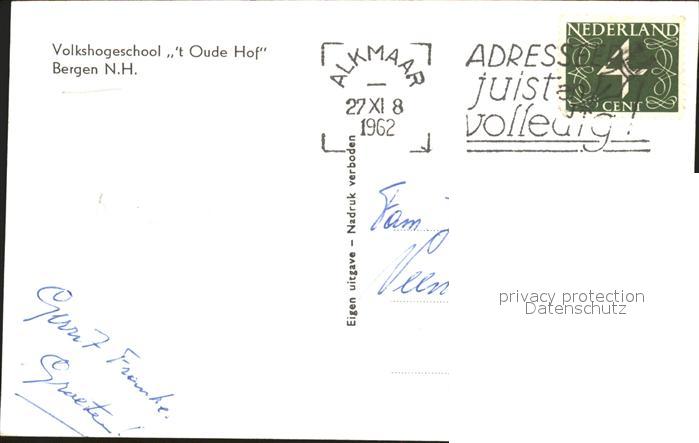 Volkshogeschool „'t Oude Hof"
Bergen N.H.
ALKMAAR
27 XI 8
1962
ADRESSEER
juist en
volledig!
NEDERLAND
4
CENT
Eigen uitgave – Nadruk verboden
Fam
Veen
privacy protection
Datenschutz
Gerrit Franke.
Groeten!